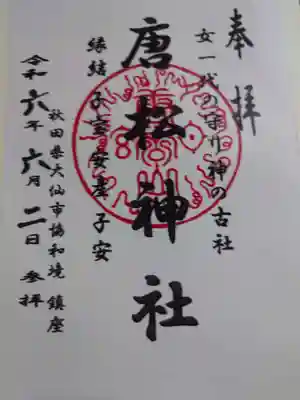 奉拝
女一代の守り神の古社
唐松神社
縁結 子宝 安産 子安
秋田県大仙市協和境 鎮座
令和六年 六月 二日 参拝